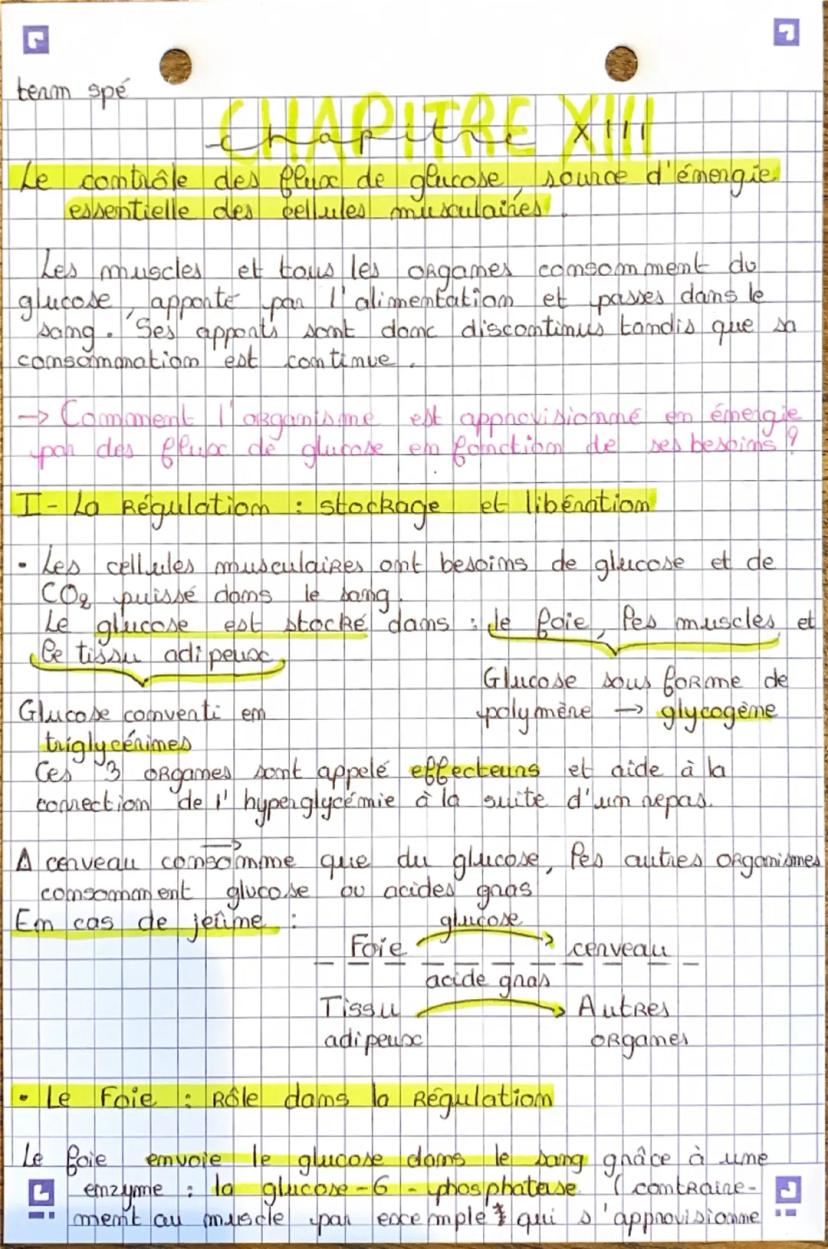 term spé
CHAPITRE XIII
chapitre XIII
Le contrôle des flux de glucose, source d'énergie
essentielle des cellules musculaires.
Les muscles et tous les organes consomment du
glucose, apporté par l'alimentation et passes dans le
sang. Ses apports sont donc discontinus tandis que sa
consommation est continue.
→ Comment l'organisme est approvisionné en énergie
par des flux de glucose en fonction de ses besoins ?
I - La Régulation : stockage et libération
• Les cellules musculaires ont besoins de glucose et de
CO2 puissé dans le sang.
Le glucose est stocké dans : le foie, les muscles et
le tissu adipeux
Glucose sous forme de
polymère → glycogène
Glucose converti en
triglycérimes
Ces 3 organes sont appelé effecteurs et aide à la
correction de l'hyperglycémie à la suite d'un repas.
∆ cerveau consomme que du glucose, les autres organismes
consomment glucose ou acides gras
En cas de jeûne :
glucose
Foie → cerveau
acide gras
Tissu → Autres
adipeux organes
• Le Foie : Rôle dans la Régulation
Le foie envoie le glucose dans le sang grâce à une
enzyme : la glucose-6-phosphatase (contraire-
ment au muscle par exemple * qui s'approvisionne